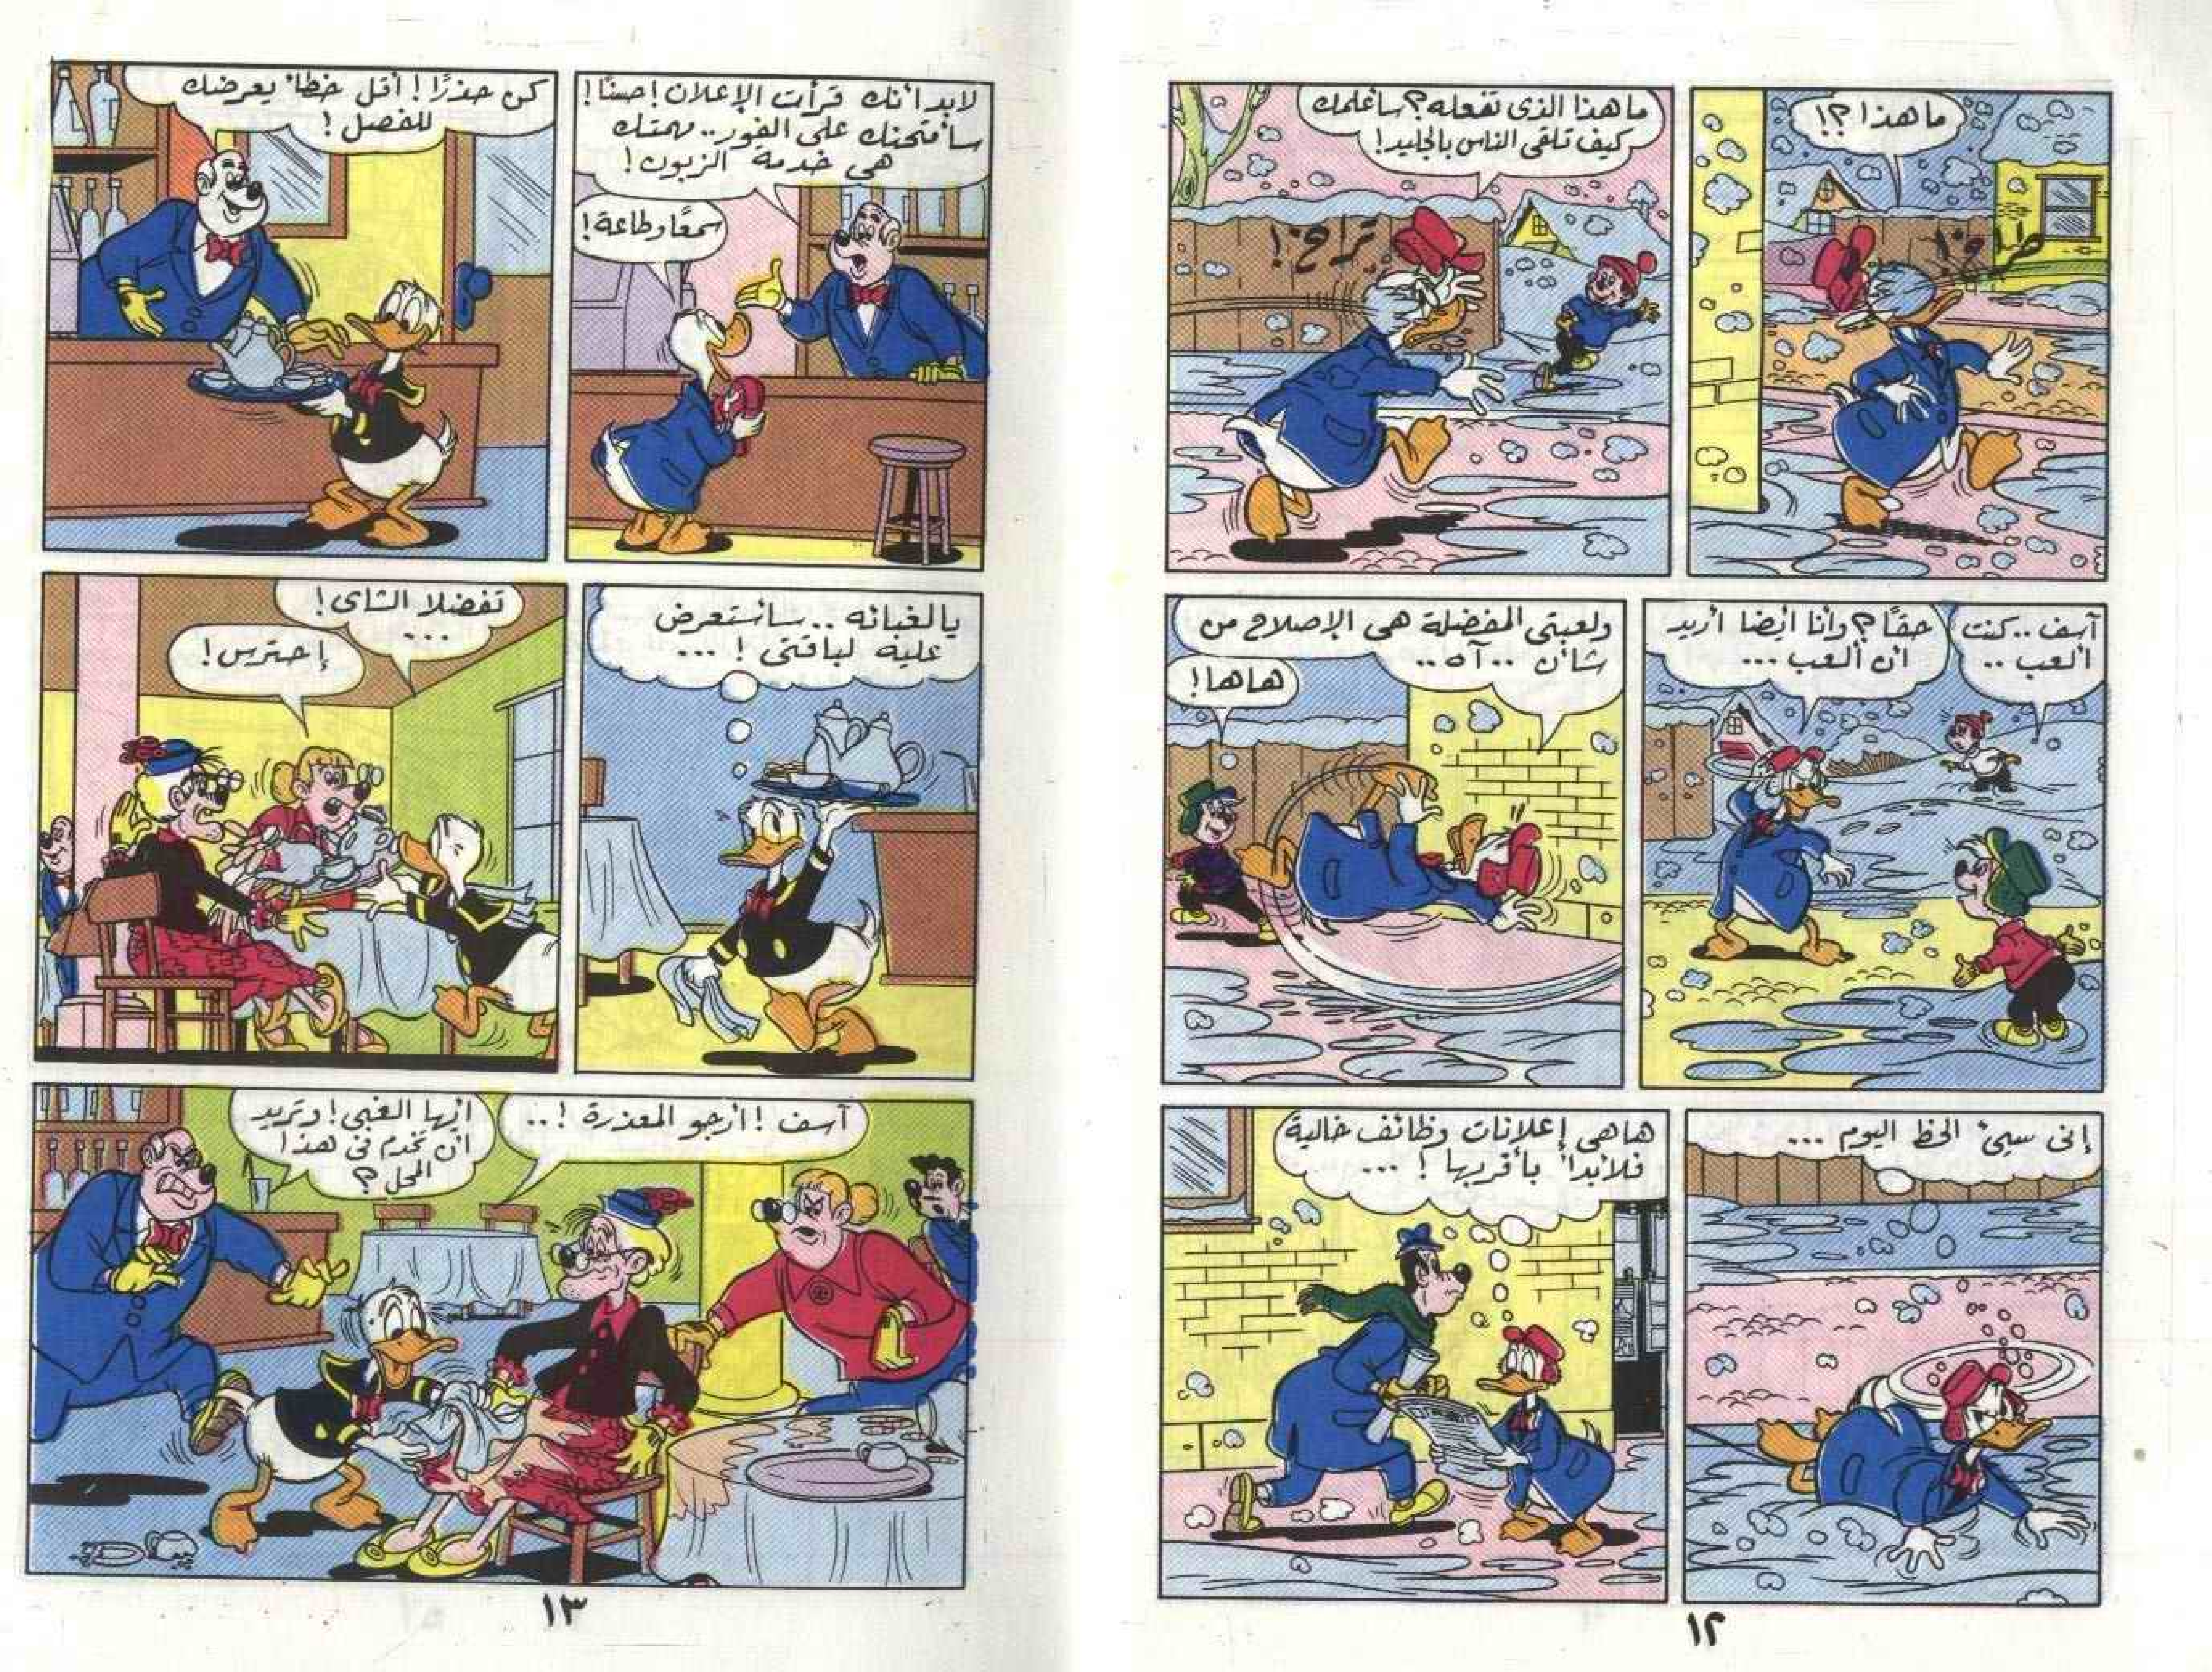 ما هذا ؟!
طراخ!
ما هذا الذى تفعله؟ سأعلمك
كيف تلقى الناس بالجليد!
تراخ!
آسف .. كنت
ألعب ..
حقًا؟ وأنا أيضا أريد
أن ألعب ...
ولعبتى المفضلة هى الإصلاح من
شأن .. آه ..
هاها!
إنى سيئ الحظ اليوم ...
هاهى إعلانات وظائف خالية
فلأبدأ بأقربها ! ...
١٢
لابد أنك قرأت الإعلان! حسنًا!
سأمتحنك على الفور .. مهمتك
هى خدمة الزبون!
سمعًا وطاعة!
كن حذرًا! أقل خطأ يعرضك
للفصل!
يالغبائه .. سأستعرض
عليه لباقتى ! ...
تفضلا الشاى!
...
إحترس!
آسف ! أرجو المعذرة ! ..
أيها الغبى! وتريد
أن تخدم فى هذا
المحل ؟
١٣